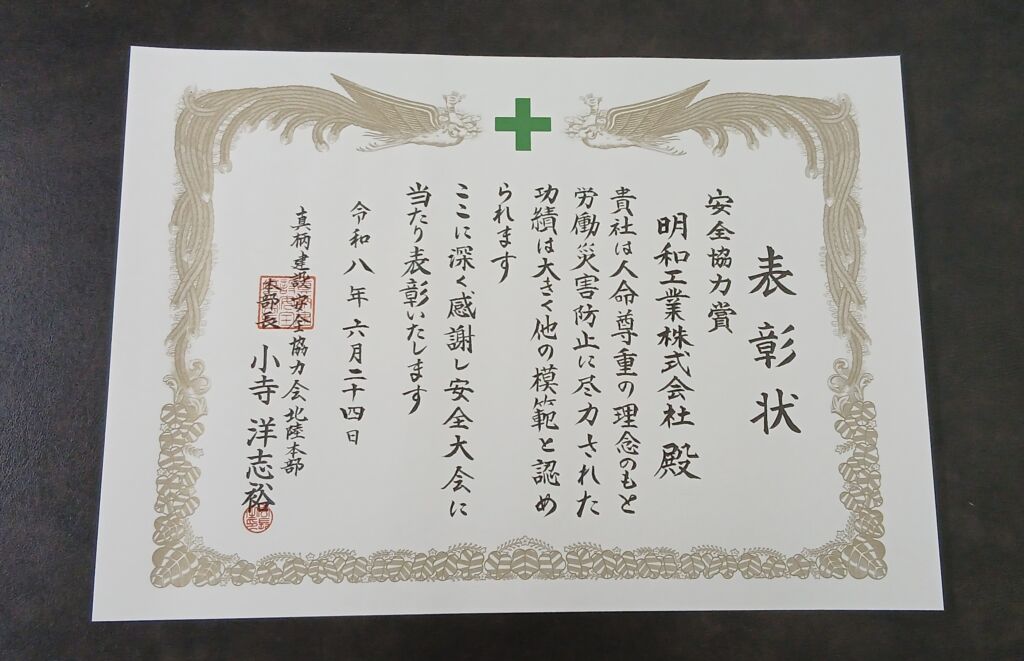 表彰状
安全協力賞
明和工業株式会社 殿
貴社は人命尊重の理念のもと
労働災害防止に尽力された
功績は大きく他の模範と認め
られます
ここに深く感謝し安全大会に
当たり表彰いたします
令和八年六月二十四日
真柄建設安全協力会北陸本部
本部長 小寺洋志裕